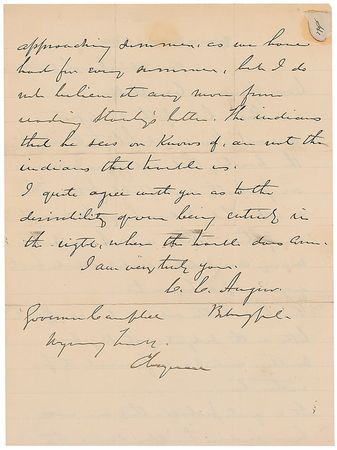 approaching summer, as we have
had for every summer, but I do
not believe it any more from
reading letter. The indians
that he sees or Knows of, are not the
indians that trouble us.
I quite agree with you as to the
desirability of our being entirely in
the right, when the trouble does come.
I am very truly yours.
C. C. Augur.
Governor Campbell
Wyoming
Cheyenne